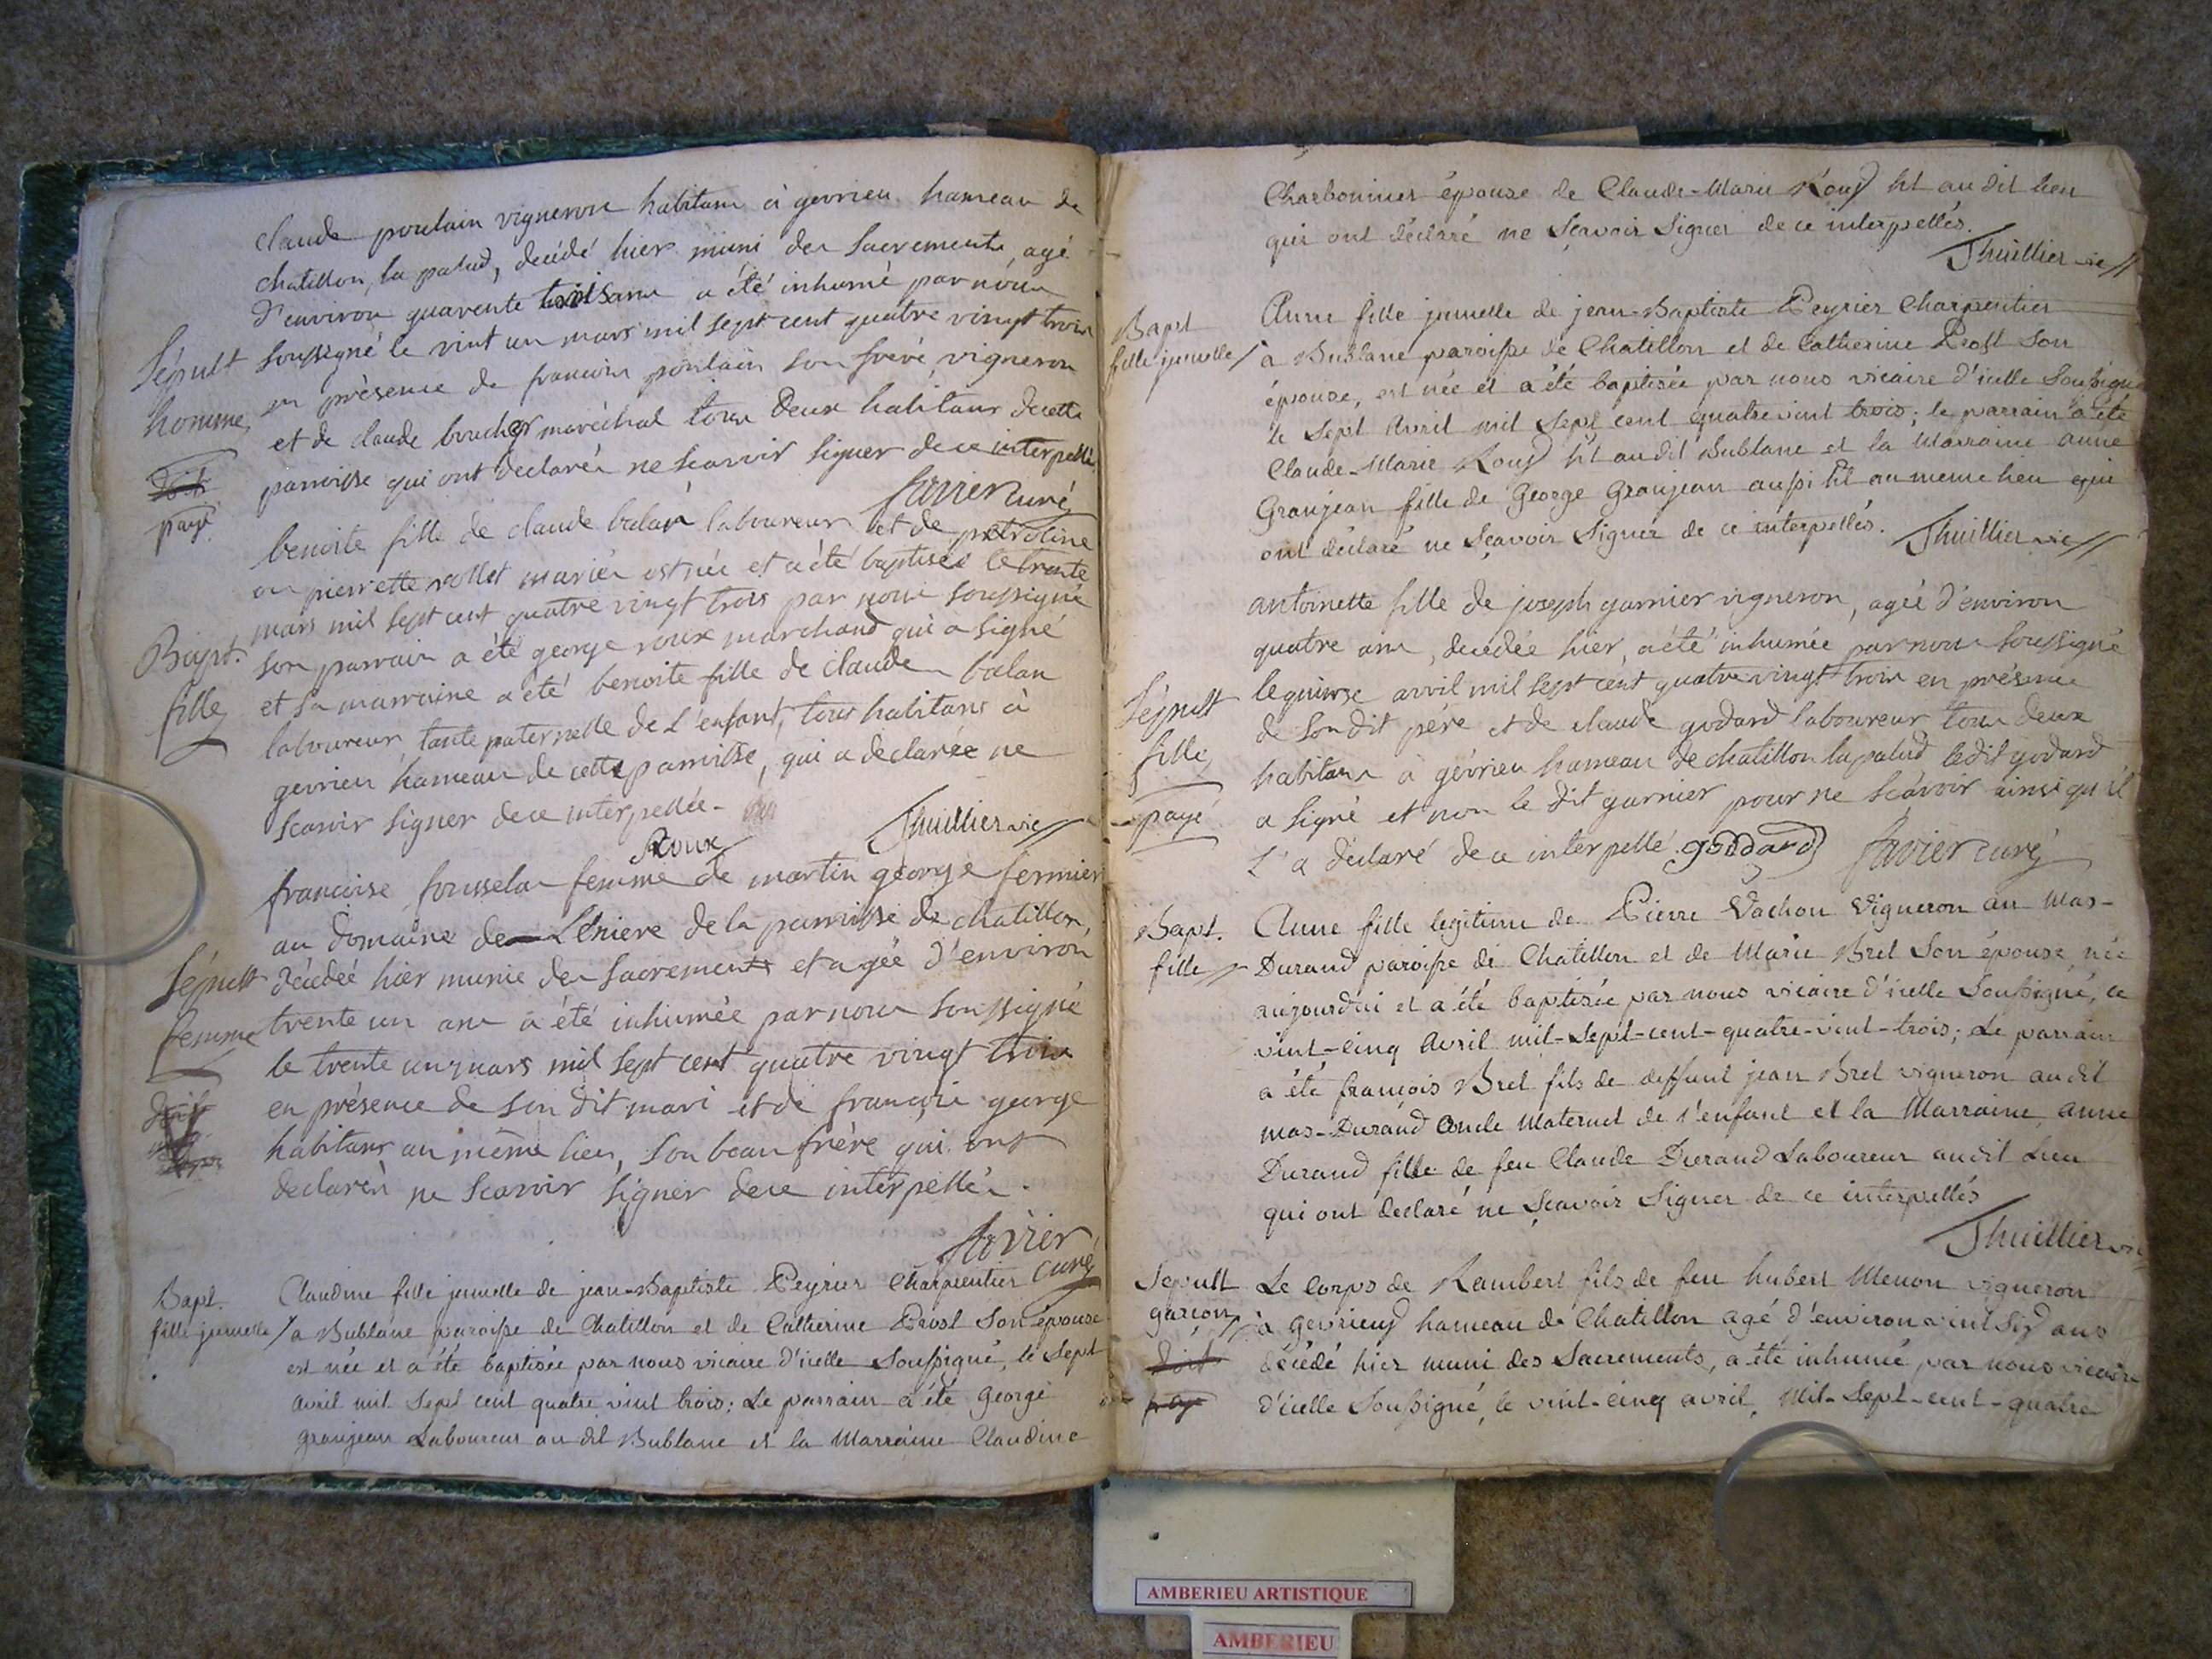 claude poulain vigneron habitant à gevrieu hameau de
chatillon la palud, decédé hier muni des sacrements, agé
d'environ quarente trois ans a été inhumé par nous
Sépult soussigné le vint un mars mil sept cent quatre vingt trois
homme en présence de francois poulain son frère, vigneron
et de claude boucher maréchal tous deux habitans de cette
doit parroisse qui ont declarés ne scavoir signer de ce interpellés
payé
favier curé
benoite fille de claude balan laboureur et de petroline
ou pierrette rollet mariés est née et a été baptisée le trente
mars mil sept cent quatre vingt trois par nous soussigné
Bapt. son parrain a été george roux marchand qui a signé
fille et sa marraine a été benoite fille de claude balan
laboureur, tante paternelle de l'enfant, tous habitans à
gevrieu hameau de cette parroisse, qui a declarée ne
scavoir signer de ce interpellée -
Roux Thuillier vic
francoise fousselas femme de martin george fermier
au domaine de Leniere de la parroisse de chatillon,
Sépult décedeé hier munie des sacrements et agée d'environ
femme trente un ans a été inhumée par nous soussigné
le trente un mars mil sept cent quatre vingt trois
doit en présence de son dit mari et de francois george
habitans au même lieu, son beau frère qui ont
declarés ne scavoir signer de ce interpellés.
favier
curé
Bapt. Claudine fille jumelle de jean-Baptiste Peyrier Charpentier
fille jumelle à Bublane paroisse de Chatillon et de Catherine Prost Son épouse
est née et a été baptisée par nous vicaire d'icelle Soussigné, le Sept
avril mil Sept cent quatre vint trois; Le parrain a été George
granjean Laboureur au dit Bublane et la Marraine Claudine
Charbonnier épouse de Claude-Marie Roux ht au dit lieu
qui ont déclaré ne Sçavoir Signer de ce interpellés.
Thuillier vic
Bapt Anne fille jumelle de jean-Baptiste Peyrier Charpentier
fille jumelle à Bublane paroisse de Chatillon et de Catherine Prost Son
épouse, est née et a été baptisée par nous vicaire d'icelle Soussigné
le Sept Avril mil Sept cent quatre vint trois; le parrain a été
Claude-Marie Roux ht au dit Bublane et la Marraine anne
Granjean fille de George Granjean aussi ht au meme lieu qui
ont déclaré ne Sçavoir Signer de ce interpellés. Thuillier vic
antoinette fille de joseph garnier vigneron, agée d'environ
quatre ans, decedée hier, a été inhumée par nous soussigné
Sépult le quinze avril mil sept cent quatre vingt trois en présence
fille de son dit père et de claude godard laboureur tous deux
habitans à gévrieu hameau de chatillon la palud ledit godard
payé a signé et non le dit garnier pour ne scavoir ainsi qu'il
l'a déclaré de ce interpellé. goddard favier curé
Bapt. Anne fille legitime de Pierre Vachon Vigneron au Mas-
fille Durand paroisse de Chatillon et de Marie Bret Son épouse née
aujourdui et a été baptisée par nous vicaire d'icelle Soussigné, ce
vint-cinq Avril mil-Sept-cent-quatre-vint-trois; Le parrain
a été françois Bret fils de deffunt jean Bret vigneron au dit
mas-Durand Oncle Maternel de l'enfant et la Marraine Anne
Durand fille de feu Claude Durand Laboureur au dit Lieu
qui ont declaré ne Sçavoir Signer de ce interpellés
Thuillier vic
Sepult Le Corps de Rambert fils de feu hubert Menon vigneron
garcon à Gevrieux hameau de Chatillon agé d'environ vint Six ans
doit décédé hier muni des Sacrements, a été inhumé par nous vicaire
paye d'icelle Soussigné, le vint-cinq avril, Mil-Sept-cent-quatre
AMBERIEU ARTISTIQUE
AMBERIEU